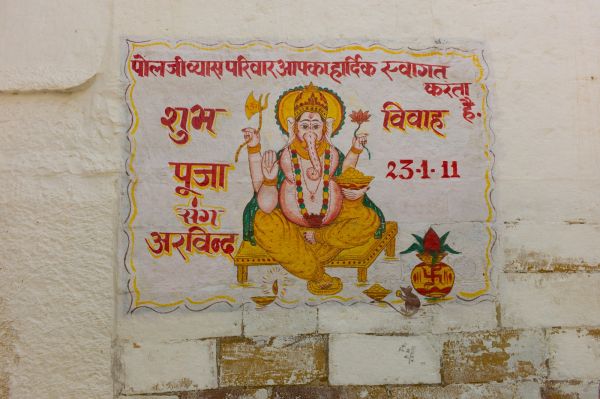 पोलजी व्यास परिवार आपका हार्दिक स्वागत
करता
है.
शुभ
विवाह
पूजा
23-1-11
संग
अरविन्द